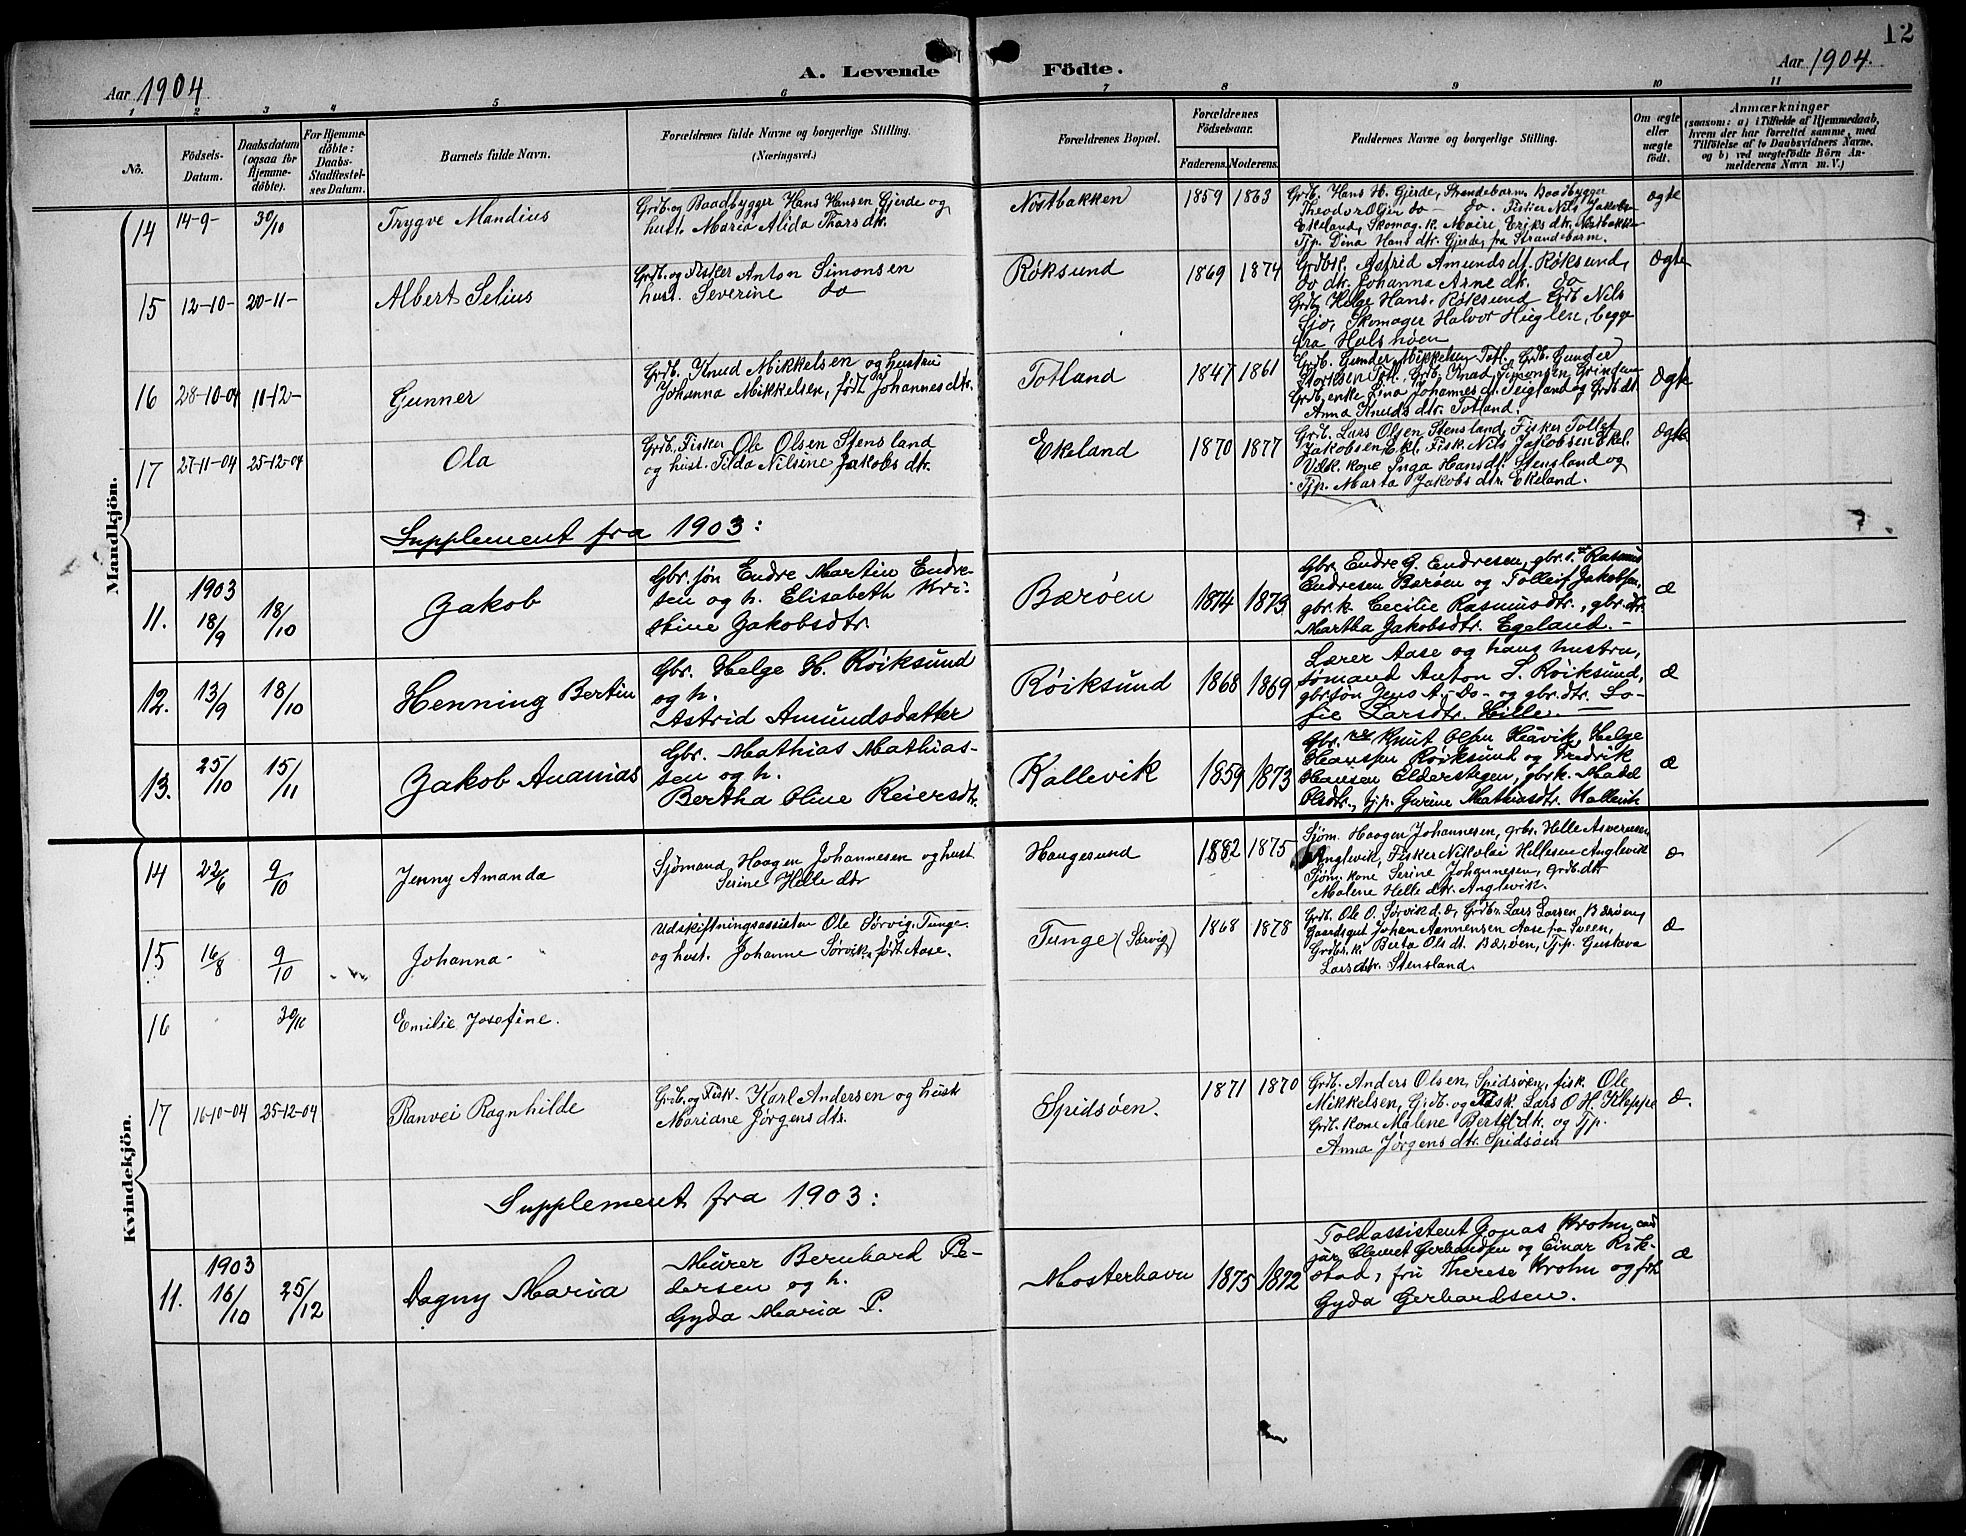 12
Aar 1904
A. Levende Födte.
Aar 1904.
1 2 3 4 5 6 7 8 9 10 11
No.
Födsels-Datum.
Daabsdatum (ogsaa for Hjemme-döbte).
For Hjemme-döbte: Daabs-Stadfæstel-ses Datum.
Barnets fulde Navn.
Forældrenes fulde Navne og borgerlige Stilling.
(Næringsvei.)
Forældrenes Bopæl.
Forældrenes Födselsaar.
Faderens. Moderens.
Faddernes Navne og borgerlige Stilling.
Om ægte eller uægte födt.
Anmærkninger
(saasom: a) i Tilfælde af Hjemmedaab,
hvem der har forrettet samme, med
Tilföielse af to Daabsvidners Navne,
og b) ved uægtefödte Börn An-
melderens Navn m. V.)
Mandkjön.
14 14-9- 30/10 Trygve Mandius
Grdb. og Baadbygger Hans Hansen Gjerde og
hust. Maria Alida Thorsdtr.
Nostbakken 1859 1863
Grdb. Hans H. Gjerde, Strandebarm. Baadbygger
Theodor Olsen do - do. Fisker Nils Jakobsen
Ekeland, Skomag. k. Eriks dtr. Nostbakken
Tjp. Dina Hans dtr. Gjerde, fra Strandebarm.
ægte
15 12-10- 20-11- Albert Selius
Grdb. og Fisker Anton Simonsen
hust. Severine do
Røksund 1869 1874
Astrid Amunds dt. Røksund,
do dk. Johanna Arne dk. do
Grdb. Helge Hans. Røksund Grdb Nils
Sjo, Skomager Halvor Huglen, begge
fra Halsnøen
Ægte
16 28-10-04 11-12- Gunner
Grdb. Knud Mikkelsen og hustru
Johanna Mikkelsen, født Johannesdtr.
Totland 1847 1861
Grdb. Gunder Mikkelsen Totl. Grdb. Gunder
Totl., Grdb. Knud Simonsen Grinden
Grdb. enke Lina Johannes dt. Teigland og Grdb dt
Anna Knuds dtr. Totland.
Ægte
17 27-11-04 25-12-04 Ola
Grdb. Fisker Ole Olsen Stensland
og hust. Tilda Nilsine Jakobs dtr.
Ekeland 1870 1877
Grdb. Lars Olsen Stensland, Fisker Tollef
Jakobsen Ekl. Fisk. Nils Jakobsen Ekl.
kone Inga Hansdt. Stensland og
Tjp. Marta Jakobs dtr. Ekeland.
Ægte
Supplement fra 1903:
11. 1903 18/9 18/10 Jakob
Gbr. søn Endre Martin Endre-
sen og h. Elisabeth Kri-
stine Jakobsdtr.
Bærøen 1874 1873
Gbr. Endre G. Endresen, gbr. s. Rasmus
Endresen Bærøen og Tolleif Jakobsen,
gbr. k. Cecilie Rasmusdtr., gbr. dtr.
Martha Jakobsdtr. Egeland. -
æ
12. 13/9 18/10 Henning Bertin
Gbr. Helge H. Røiksund
og h.
Astrid Amundsdatter
Røiksund 1868 1869
Lærer Aase og hans hustru,
sømand Anton S. Røiksund,
gbr. søn Jens A. - Do - og gbr. dtr. So-
fie Larsdtr. Hille.
æ
13. 25/10 15/11 Jakob Ananias
Gbr. Mathias Mathias-
sen og h.
Bertha Oline Reiersdtr.
Kallevik 1859 1873
Gbr. Knut Olsen Heavik, Helge
Hansen Røiksund og Fredrik
Hansen Elderstegen, gbr. k.
Olsdtr., tjp. Gurine Mathiasdtr. Kallevik
æ
Kvindekjön.
14 22/6 9/10 Jenny Amanda
Sjømand Haagen Johannesen og hust
Serine Helle dtr
Haugesund 1882 1875
Sjøm. Haagen Johannesen, grbr. Helle Asversen
Anglevik, Fisker Nikolai Hellesen Anglevik
Sjøm. kone Serine Johannesen, Grdb. dtr
Malene Helle dtr. Anglevik.
æ
15 16/8 9/10 Johanna-
Udskiftningsassistén Ole Sørvig. Tunge
og hust. Johanne Sørvik, født Aase.
Tunge (Sørvig) 1868 1878
Grdb. Ole O. Sørvik d. æ, Grdbr. Lars Larsen, Bærøen,
Gaardsgut Johan Aannensen Aase fra Sveen,
Grdbr. k. Berta Ols dt. Bærøen, Tjp. Gustava
Larsdtr. Stensland.
æ
16 30/10 Emilie Josefine.
17 16-10-04 25-12-04 Ranvei Ragnhilde
Grdb. og Fisk. Karl Andersen og husk
Mariane Jørgens dtr.
Spidsøen. 1871 1870
Grdb. Anders Olsen, Spidsøen, fisk. Ole
Mikkelsen, Grdb. og Fisk. Lars O H. Kleppe
Grdb. kone Malene Bertel dk. og Tjp.
Anna Jørgens dtr. Spidsøen
æ.
Supplement fra 1903:
11. 1903 16/10 25/12 Dagny Maria
Murer Bernhard Pe-
dersen og h.
Gyda Maria P.
Mosterhavn 1875 1872
Toldassistent Jonas Krohn, cand
jur. Clemet Gerhardsen og Einar Rik-
stad, fru Therese Krohn og frk
Gyda Gerhardsen.
æ